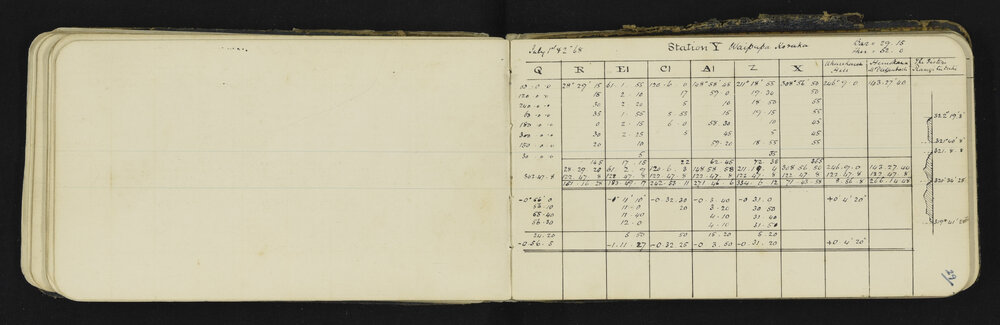 July 1st 82° 68 Station Y Waipapa Koruka Bar = 29.15
Ther = 52.0
Q R E1 C1 A1 Z X Wharekauri Hall
0.0 28° 29' 15 61. 1. 55 120. 6. 0 148° 58' 45 211° 18' 55 308° 56' 50 246° 9. 0 143. 27' 40
120.0.0 15 2. 10 17 59. 0 19. 30 50
240.0.0 30 2. 20 5 10 18. 50 55
35 1. 55 5. 55 15 19. 15 55
180.0.0 0 2. 15 6. 0 58. 30 10 45
300.0.0 30 2. 25 5 45 5 45
150.0.0 20 10 59. 20 18. 55 55
30.0.0 5 35
145 17. 15 22 62. 45 72. 35 355
28. 29. 20 61. 2. 9 120. 6. 3 148. 58. 58 211. 19. 4 308. 56. 50 246. 9. 0 143. 27. 40
302.47.8 122. 47. 8 122. 47. 8 122. 47. 8 122. 47. 8 122. 47. 8 122. 47. 8 122. 47. 8 122. 47. 8
151. 16. 28 183. 49. 17 242. 53. 11 271. 46. 6 334. 6. 12 71. 43. 58 8. 56. 8 266. 14. 48
322° 19' 8"
321° 40' 8
321. 8. 8
320° 36' 28
319° 41' 28"
-0° 56' 0 -1° 11' 10" -0. 32. 30 -0. 3. 40 -0. 31. 0 +0. 4' 20"
56. 10 11. 0 20 3. 20 30. 50
55. 40 11. 40 4. 10 31. 40
56. 30 12. 0 4. 10 31. 50
24. 20 5. 50 50 15. 20 5. 20
-0. 56. 5 -1. 11. 27 -0. 32. 25 -0. 3. 50 -0. 31. 20 +0. 4' 20"
29